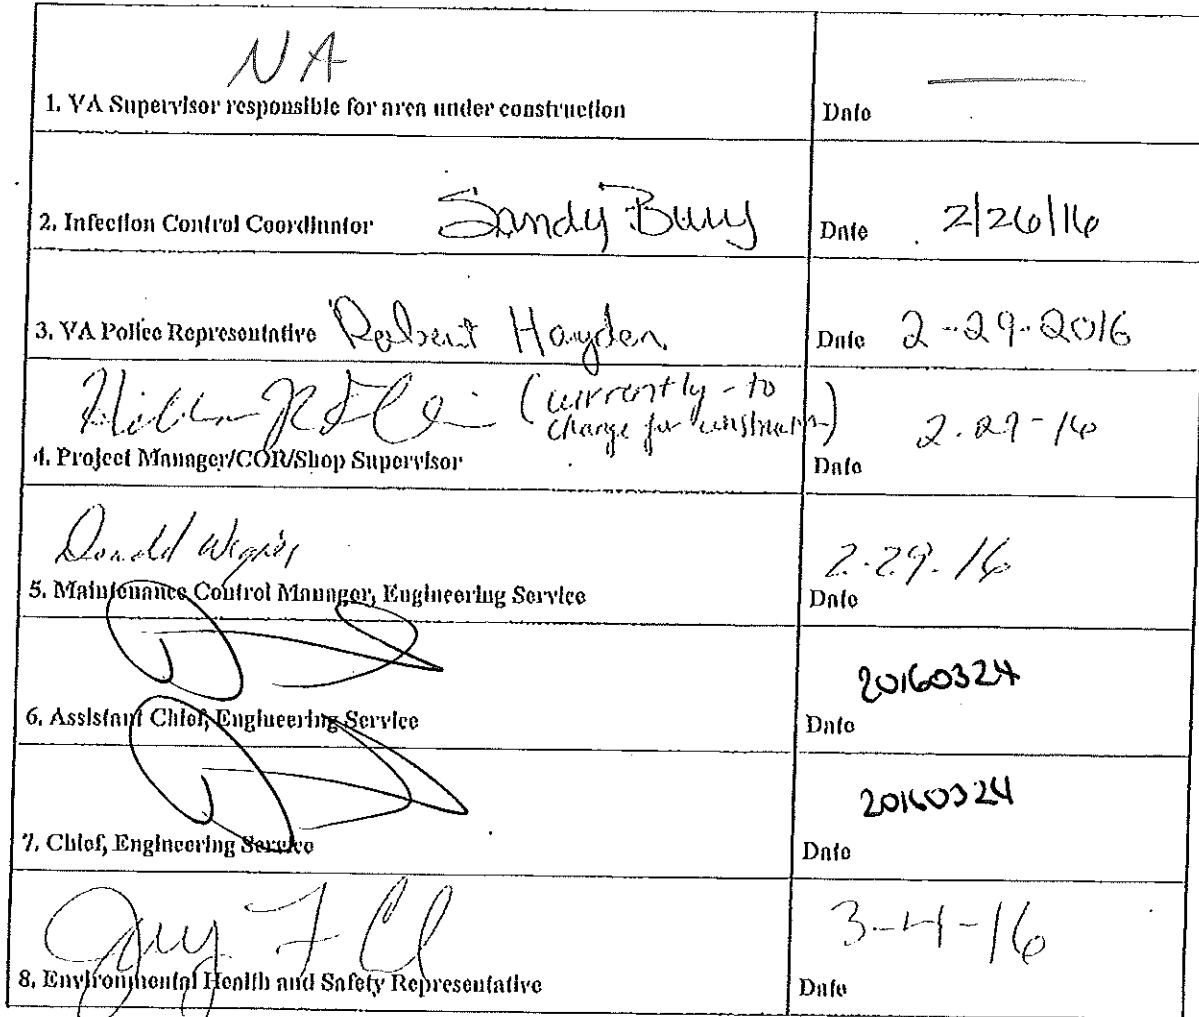 NA
1. VA Supervisor responsible for area under construction
Date —
2. Infection Control Coordinator Sandy Bury
Date 2/26/16
3. VA Police Representative Robert Hayden
Date 2-29-2016
(currently - to
change for construction)
4. Project Manager/COR/Shop Supervisor
Date 2-29-16
Donald
5. Maintenance Control Manager, Engineering Service
Date 2-29-16
6. Assistant Chief, Engineering Service
Date 20160324
7. Chief, Engineering Service
Date 20160324
8. Environmental Health and Safety Representative
Date 3-4-16